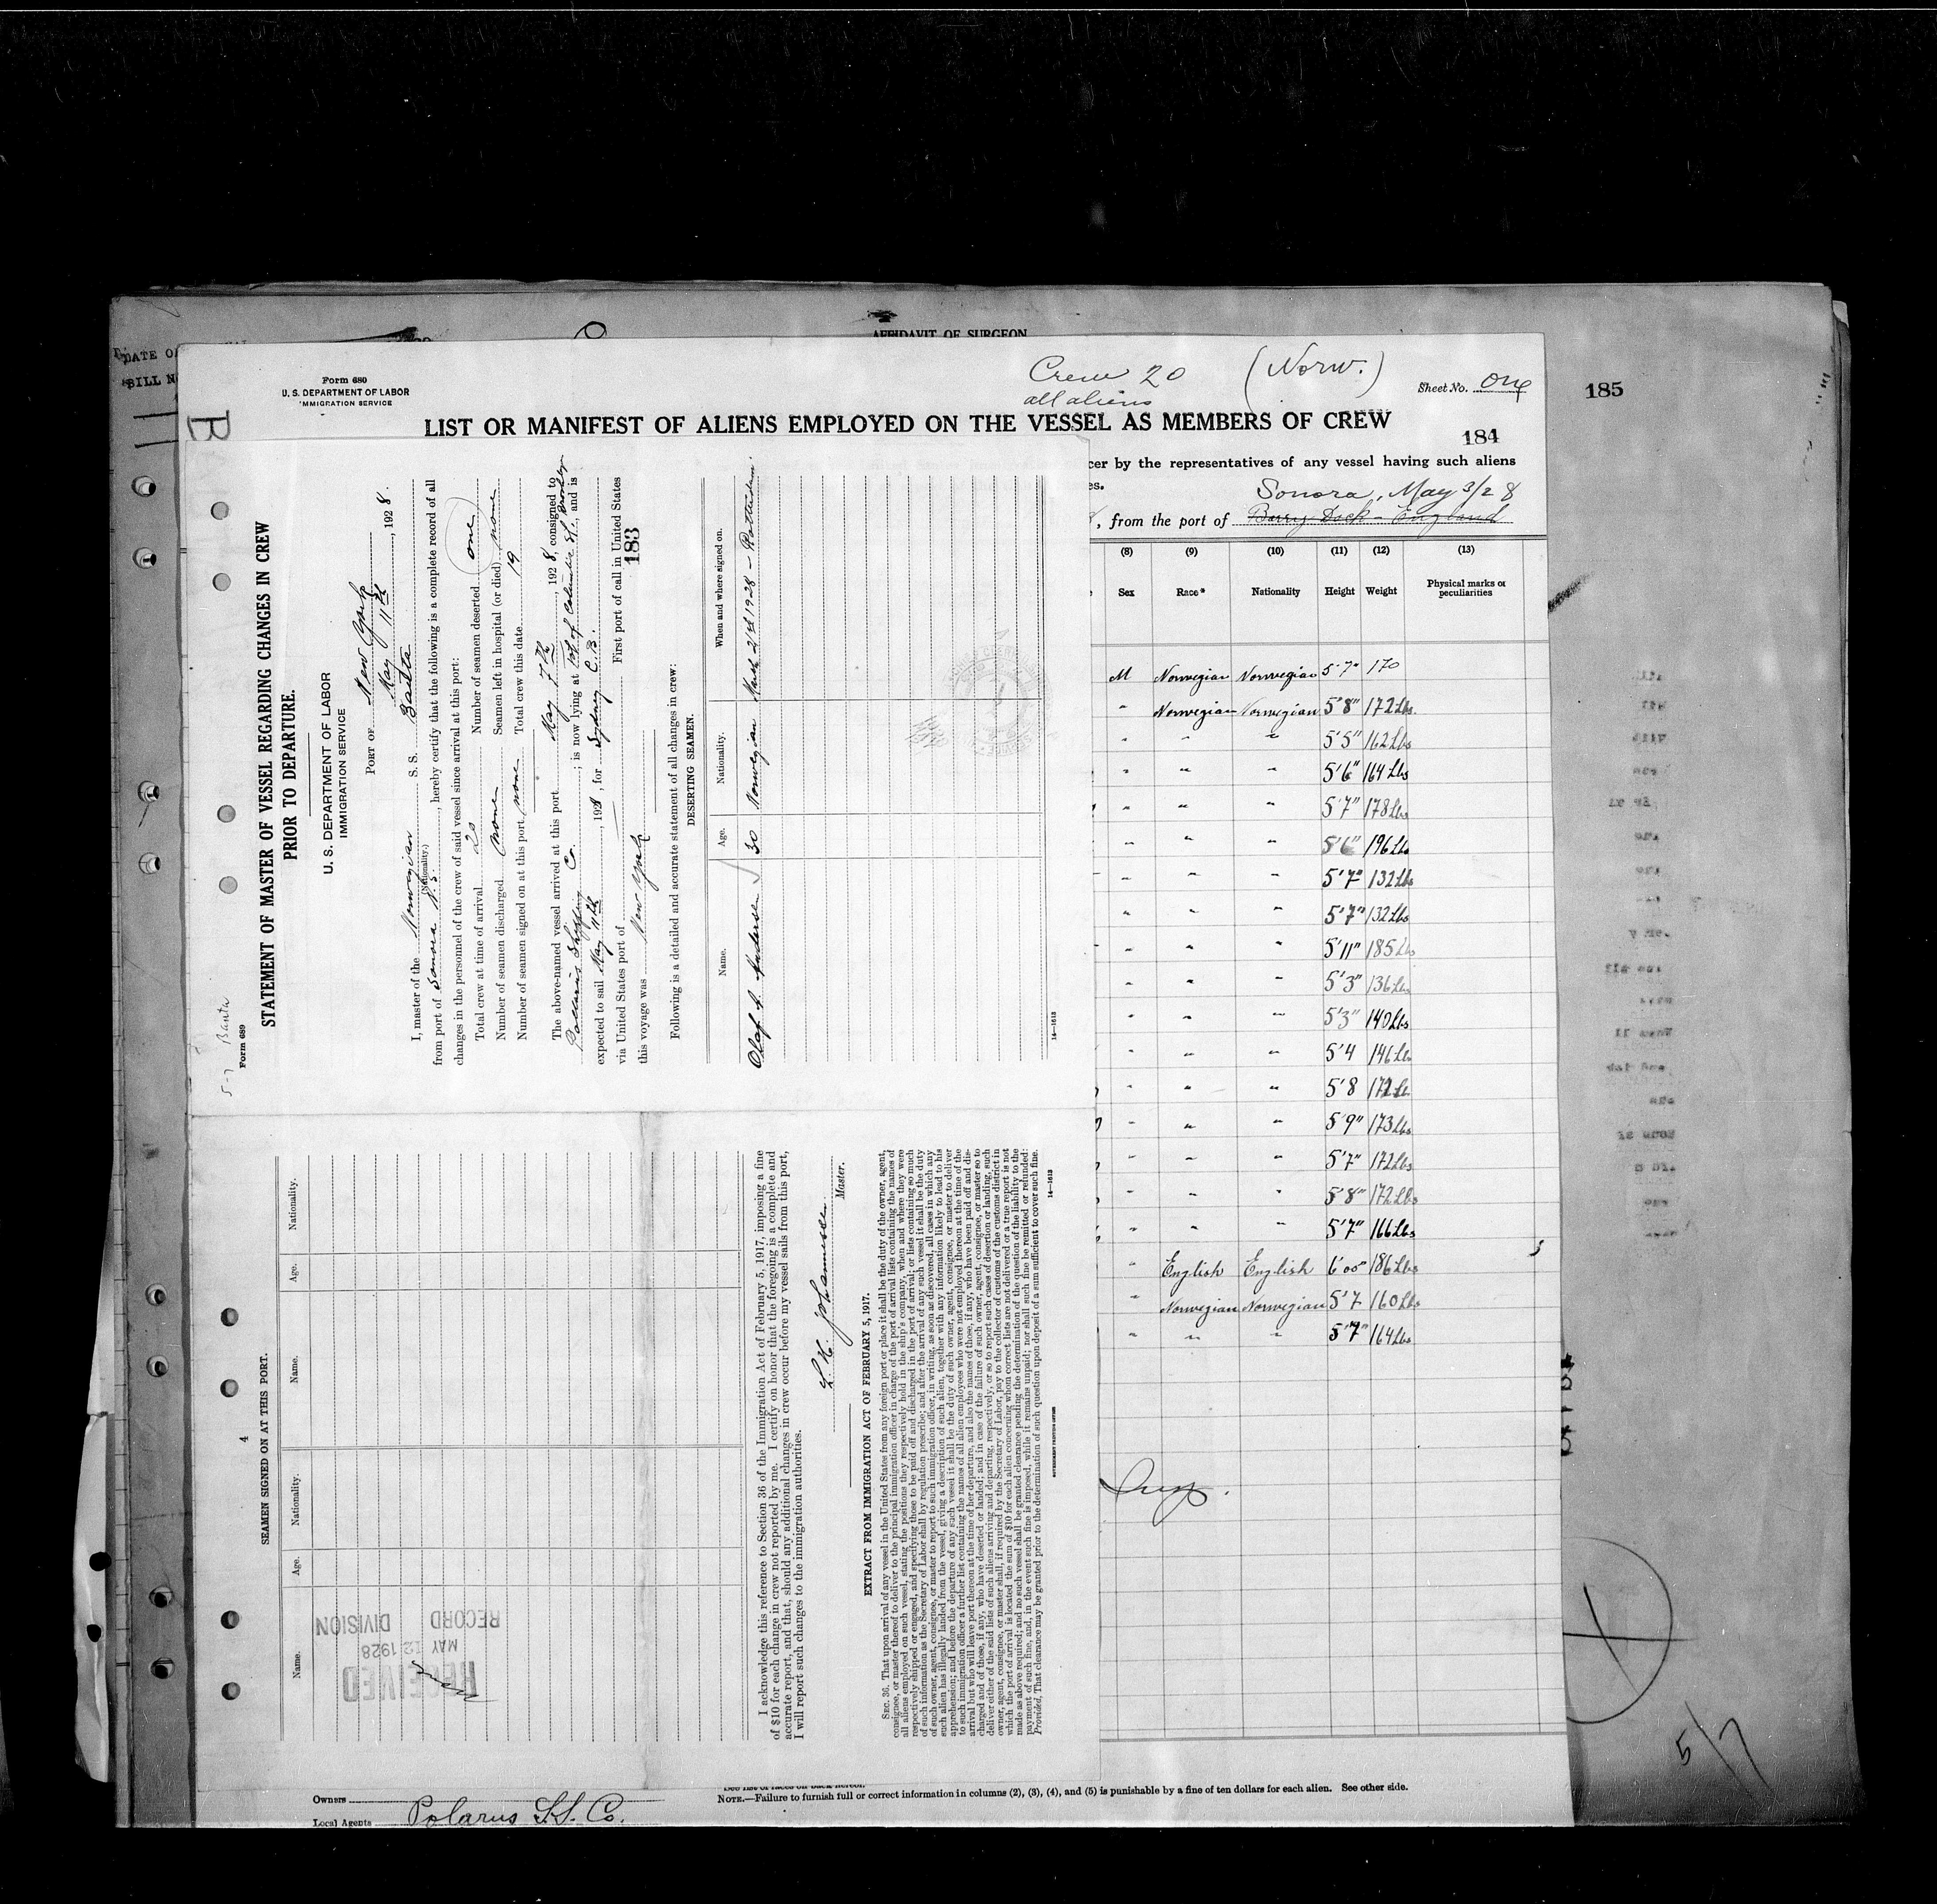 AFFIDAVIT OF SURGEON
DATE O
BILL N
185
Form 680
U. S. DEPARTMENT OF LABOR
IMMIGRATION SERVICE
Crew 20
all aliens
(Norw.)
Sheet No. One
LIST OR MANIFEST OF ALIENS EMPLOYED ON THE VESSEL AS MEMBERS OF CREW
184
cer by the representatives of any vessel having such aliens
es.
Sonora, May 3/28
, from the port of Barry Dock - England
(8) (9) (10) (11) (12) (13)
Sex Race* Nationality Height Weight Physical marks or peculiarities
M Norwegian Norwegian 5'7" 170
" Norwegian Norwegian 5'8" 172 Lbs.
" " " 5'5" 162 Lbs
" " " 5'6" 164 Lbs
" " " 5'7" 178 Lbs
" " " 5'6" 196 Lbs
" " " 5'7" 132 Lbs
" " " 5'7" 132 Lbs
" " " 5'11" 185 Lbs
" " " 5'3" 136 Lbs
" " " 5'3" 140 Lbs
" " " 5'4 146 Lbs
" " " 5'8 172 Lbs
" " " 5'9" 173 Lbs
" " " 5'7" 172 Lbs
" " " 5'8" 172 Lbs
" " " 5'7" 166 Lbs
" English English 6'00" 186 Lbs
" Norwegian Norwegian 5'7 160 Lbs
" " " 5'7" 164 Lbs
5/7
5-7 Banta
Form 689
STATEMENT OF MASTER OF VESSEL REGARDING CHANGES IN CREW
PRIOR TO DEPARTURE.
U. S. DEPARTMENT OF LABOR
IMMIGRATION SERVICE
PORT OF New York
May 11th, 1928.
I, master of the Norwegian S. S. Banta
(Nationality.)
from port of Sonora N.S., hereby certify that the following is a complete record of all
changes in the personnel of the crew of said vessel since arrival at this port:
Total crew at time of arrival 20 Number of seamen deserted one
Number of seamen discharged none Seamen left in hospital (or died) none
Number of seamen signed on at this port none Total crew this date 19
The above-named vessel arrived at this port May 7th, 1928, consigned to
Polarus Shipping Co.; is now lying at ft of Columbia St. Brooklyn, and is
expected to sail May 11th, 1928, for Sydney C.B.
via United States port of First port of call in United States
this voyage was New York
183
Following is a detailed and accurate statement of all changes in crew:
DESERTING SEAMEN.
Name. Age. Nationality. When and where signed on.
Olaf A. Andersen 30 Norwegian March 21st 1928 - Rotterdam
14—1613
4
SEAMEN SIGNED ON AT THIS PORT.
Name. Age. Nationality. Name. Age. Nationality.
RECEIVED
MAY 12 1928
RECORD DIVISION
I acknowledge this reference to Section 36 of the Immigration Act of February 5, 1917, imposing a fine
of $10 for each change in crew not reported by me. I certify on honor that the foregoing is a complete and
accurate report, and that, should any additional changes in crew occur before my vessel sails from this port,
I will report such changes to the immigration authorities.
L. K. Johannessen
Master.
EXTRACT FROM IMMIGRATION ACT OF FEBRUARY 5, 1917.
SEC. 36. That upon arrival of any vessel in the United States from any foreign port or place it shall be the duty of the owner, agent,
consignee, or master thereof to deliver to the principal immigration officer in charge of the port of arrival lists containing the names of
all aliens employed on such vessel, stating the positions they respectively hold in the ship's company, when and where they were
respectively shipped or engaged, and specifying those to be paid off and discharged in the port of arrival; or lists containing so much
of such information as the Secretary of Labor shall by regulation prescribe; and after the arrival of any such vessel it shall be the duty
of such owner, agent, consignee, or master to report to such immigration officer, in writing, as soon as discovered, all cases in which any
such alien has illegally landed from the vessel, giving a description of such alien, together with any information likely to lead to his
apprehension; and before the departure of any such vessel it shall be the duty of such owner, agent, consignee, or master to deliver
to such immigration officer a further list containing the names of all alien employees who were not employed thereon at the time of the
arrival but who will leave port thereon at the time of her departure, and also the names of those, if any, who have been paid off and dis-
charged and of those, if any, who have deserted or landed; and in case of the failure of such owner, agent, consignee, or master so to
deliver either of the said lists of such aliens arriving and departing, respectively, or so to report such cases of desertion or landing, such
owner, agent, consignee, or master shall, if required by the Secretary of Labor, pay to the collector of customs of the customs district in
which the port of arrival is located the sum of $10 for each alien concerning whom correct lists are not delivered or a true report is not
made as above required; and no such vessel shall be granted clearance pending the determination of the question of the liability to the
payment of such fine, and, in the event such fine is imposed, while it remains unpaid; nor shall such fine be remitted or refunded:
Provided, That clearance may be granted prior to the determination of such question upon deposit of a sum sufficient to cover such fine.
14—1613
GOVERNMENT PRINTING OFFICE
See list of races on back hereof.
NOTE.—Failure to furnish full or correct information in columns (2), (3), (4), and (5) is punishable by a fine of ten dollars for each alien. See other side.
Owners
Local Agents Polarus S.S. Co.